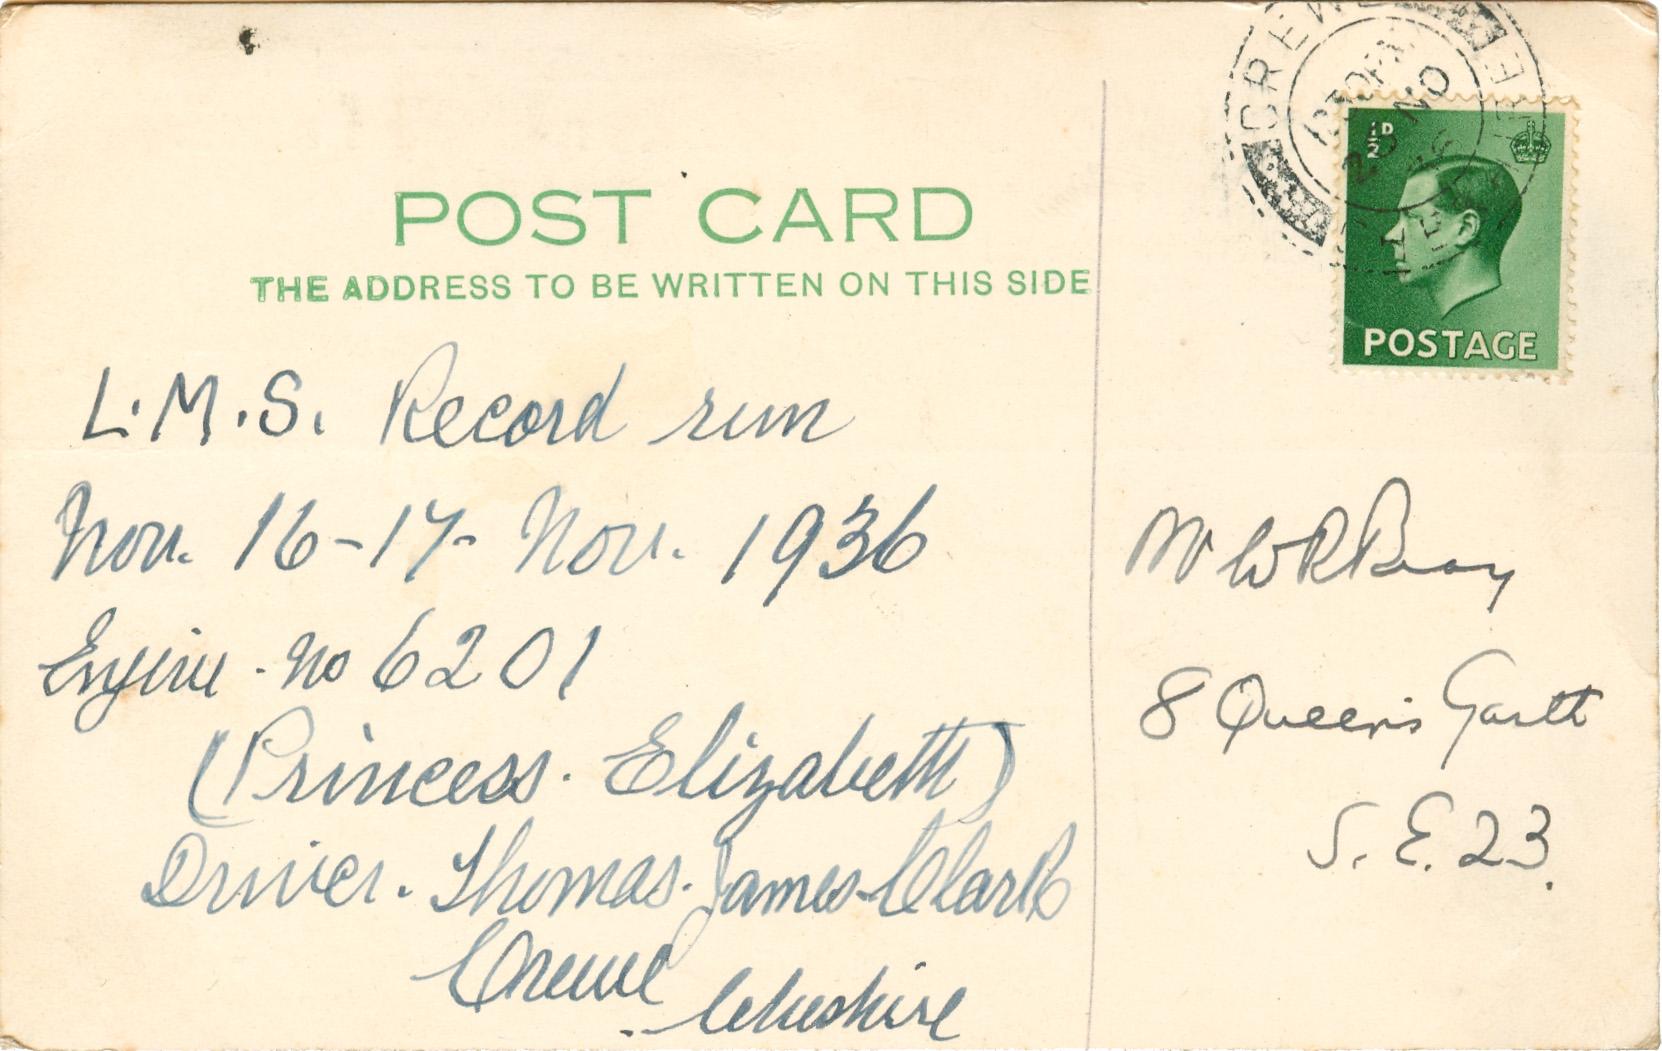 POST CARD
THE ADDRESS TO BE WRITTEN ON THIS SIDE
L.M.S. Record run
Nov. 16-17- Nov. 1936
Engine. No 6201
(Princess. Elizabeth)
Driver. Thomas. James. Clark
Crewe
. Cheshire
CREWE
NO
½D
POSTAGE
Mr W R Bray
8 Queen's Garth
S.E. 23.